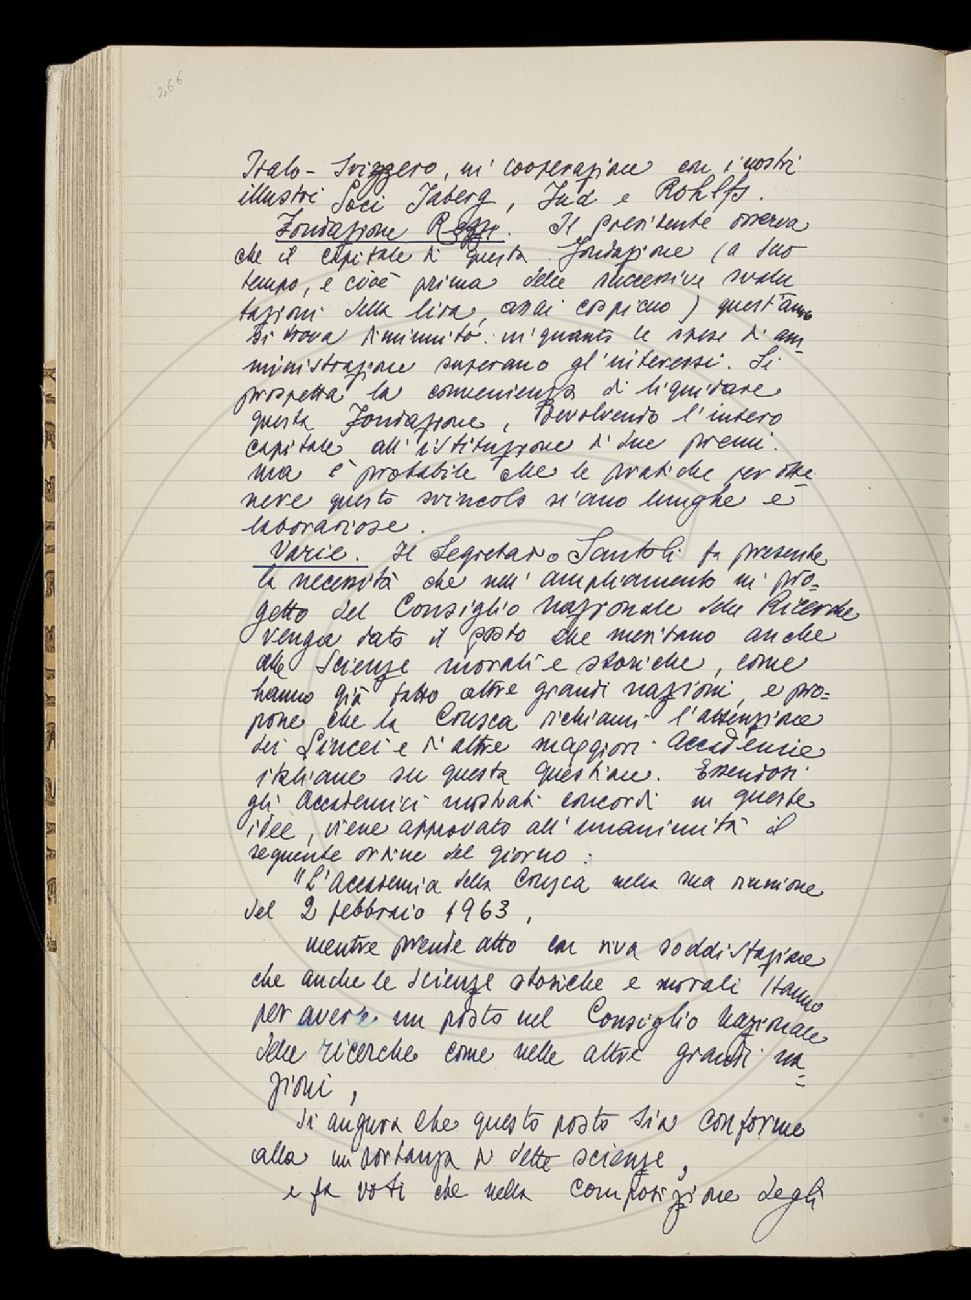 266
Italo-Svizzero, in cooperazione con i nostri
illustri Soci Jaberg, Jud e Rohlfs.
Fondazione Rezzi. Il Presidente osserva
che il capitale di questa Fondazione (a suo
tempo, e cioè prima delle successive svalu
tazioni della lira, assai cospicuo) quest'anno
si trova diminuito: in quanto le spese di am-
ministrazione superano gl'interessi. Si
prospetta la convenienza di liquidare
questa Fondazione, devolvendo l'intero
capitale all'istituzione di due premi:
ma è probabile che le pratiche per otte-
nere questo svincolo siano lunghe e
laboriose.
Varie. Il Segretario Santoli fa presente
la necessità che nell'ampliamento in pro=
getto del Consiglio nazionale delle Ricerche
venga dato il posto che meritano anche
alle Scienze morali e storiche, come
hanno già fatto altre grandi nazioni, e pro=
pone che la Crusca richiami l'attenzione
dei Lincei e di altre maggiori Accademie
italiane su questa questione. Essendosi
gli Accademici mostrati concordi in queste
idee, viene approvato all'unanimità il
seguente ordine del giorno:
"L'Accademia della Crusca nella sua riunione
del 2 febbraio 1963,
mentre prende atto con viva soddisfazione
che anche le scienze storiche e morali stanno
per avere un posto nel Consiglio Nazionale
delle ricerche come nelle altre grandi na=
zioni,
si augura che questo posto sia conforme
alla importanza di dette scienze,
e fa voti che nella composizione degli